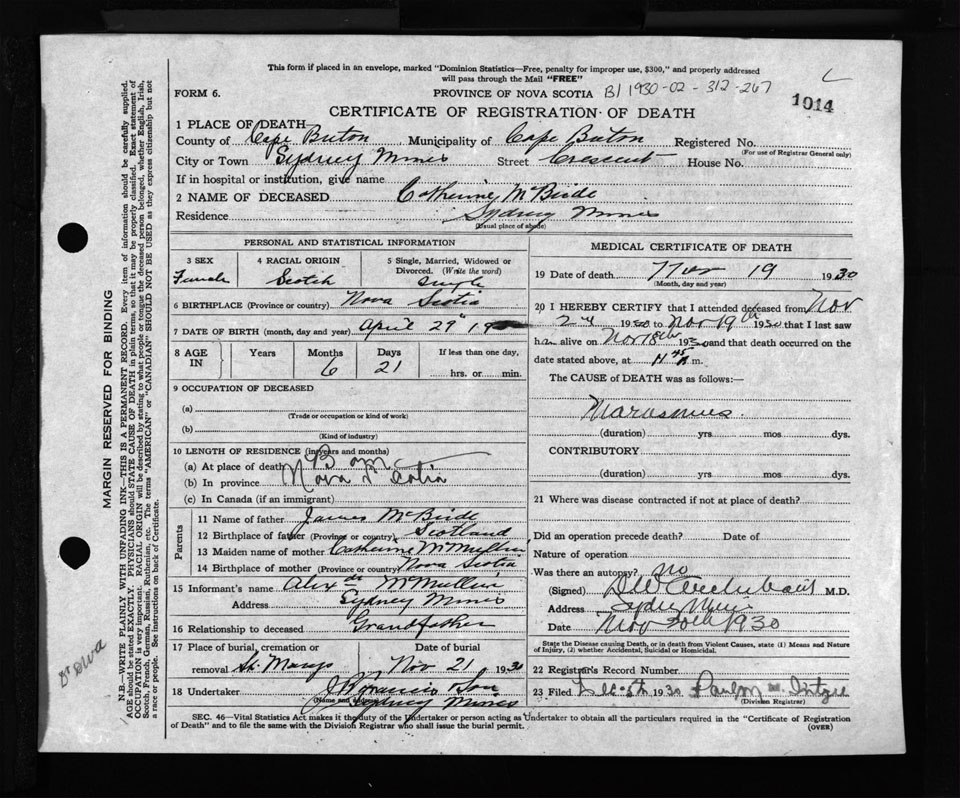 This form if placed in an envelope, marked "Dominion Statistics—Free, penalty for improper use, $300," and properly addressed
will pass through the Mail "FREE"
FORM 6.
PROVINCE OF NOVA SCOTIA B1 1930-02-312-267
1014
CERTIFICATE OF REGISTRATION OF DEATH
1 PLACE OF DEATH
County of Cape Breton, Municipality of Cape Breton Registered No.
(For use of Registrar General only)
City or Town Sydney Mines Street Crescent House No.
If in hospital or institution, give name
2 NAME OF DECEASED Catherine McBride
Residence Sydney Mines
(Usual place of abode)
PERSONAL AND STATISTICAL INFORMATION
3 SEX Female
4 RACIAL ORIGIN Scotch
5 Single, Married, Widowed or Divorced. (Write the word) Single
6 BIRTHPLACE (Province or country) Nova Scotia
7 DATE OF BIRTH (month, day and year) April 29" 19
8 AGE IN Years Months 6 Days 21 If less than one day, hrs. or min.
9 OCCUPATION OF DECEASED
(a)
(Trade or occupation or kind of work)
(b)
(Kind of industry)
10 LENGTH OF RESIDENCE (in years and months)
(a) At place of death Born
(b) In province Nova Scotia
(c) In Canada (if an immigrant)
Parents
11 Name of father James McBride
12 Birthplace of father (Province or country) Scotland
13 Maiden name of mother Catherine McMullin
14 Birthplace of mother (Province or country) Nova Scotia
15 Informant's name Alexdr McMullin
Address Sydney Mines
16 Relationship to deceased Grandfather
17 Place of burial, cremation or removal St. Marys Nov 21 1930
18 Undertaker Son
(Name and address) Sydney Mines
MEDICAL CERTIFICATE OF DEATH
19 Date of death Nov 19 1930
(Month, day and year)
20 I HEREBY CERTIFY that I attended deceased from Nov
2nd 1930 to Nov 19th 1930 that I last saw
her alive on Nov 18th 1930 and that death occurred on the
date stated above, at 11 45 m.
The CAUSE of DEATH was as follows:—
Marasmus
(duration) yrs mos dys.
CONTRIBUTORY
(duration) yrs mos dys.
21 Where was disease contracted if not at place of death?
Did an operation precede death? Date of
Nature of operation
Was there an autopsy? no
(Signed) Archibald M.D.
Address Sydney Mines
Date Nov 20th 1930
State the Disease causing Death, or in death from Violent Causes, state (1) Means and Nature of Injury, (2) whether Accidental, Suicidal or Homicidal.
22 Registrar's Record Number
23 Filed Dec 5th 1930
(Division Registrar)
SEC. 46—Vital Statistics Act makes it the duty of the Undertaker or person acting as Undertaker to obtain all the particulars required in the "Certificate of Registration
of Death" and to file the same with the Division Registrar who shall issue the burial permit.
(OVER)
MARGIN RESERVED FOR BINDING
N.B.—WRITE PLAINLY WITH UNFADING INK—THIS IS A PERMANENT RECORD. Every item of information should be carefully supplied.
AGE should be stated EXACTLY. PHYSICIANS should STATE CAUSE OF DEATH in plain terms, so that it may be properly classified. Exact statement of
OCCUPATION is very important. RACIAL ORIGIN will be described by stating to what people or tongue the deceased person belonged, whether English, Irish,
Scotch, French, German, Russian, Ruthenian, etc. The terms "AMERICAN" or "CANADIAN" SHOULD NOT BE USED as they express citizenship but not
a race or people. See instructions on back of Certificate.